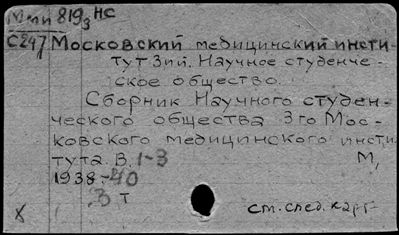 Мми 819₃ НС
С247 Московский медицинский инсти-
тут 3ий. Научное студенче-
ское общество.
Сборник Научного студен-
ческого общества 3го Мос-
ковского медицинского инсти-
тута. В. 1-3 М,
1938-40
3 т
см. след. карт